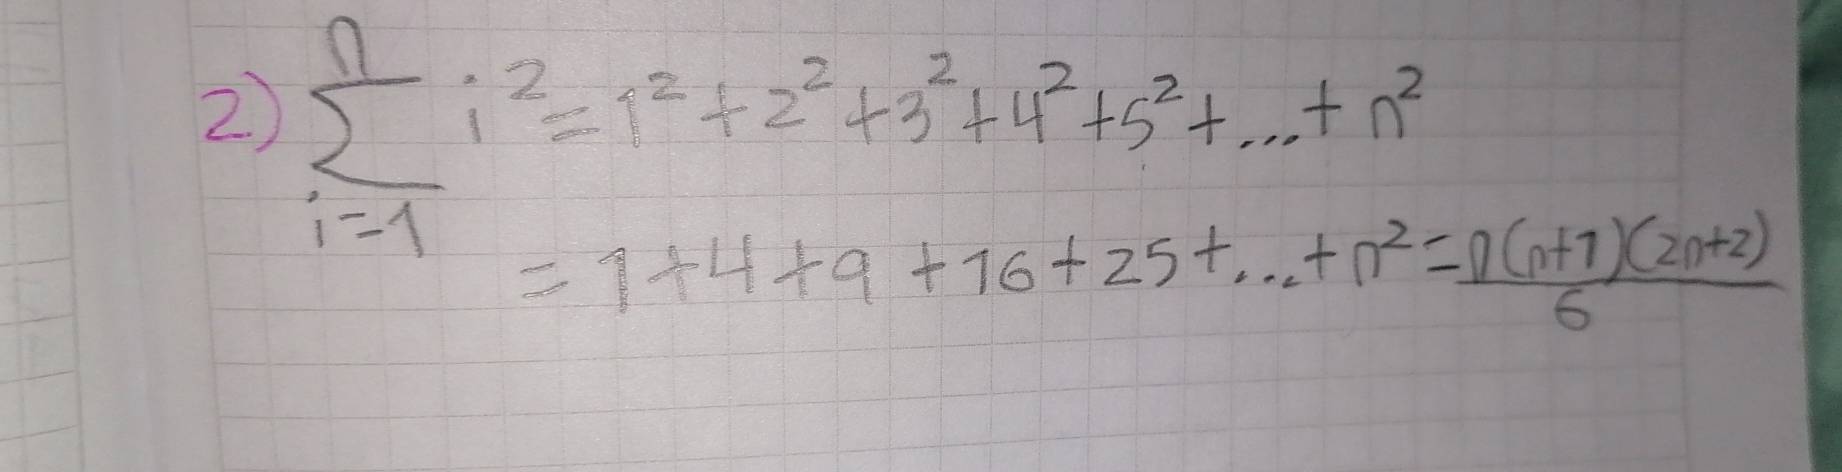 2.) \sum_{i=1}^{n} i² = 1² + 2² + 3² + 4² + 5² + ... + n²
= 1 + 4 + 9 + 16 + 25 + ... + n² = \frac{n(n+1)(2n+2)}{6}